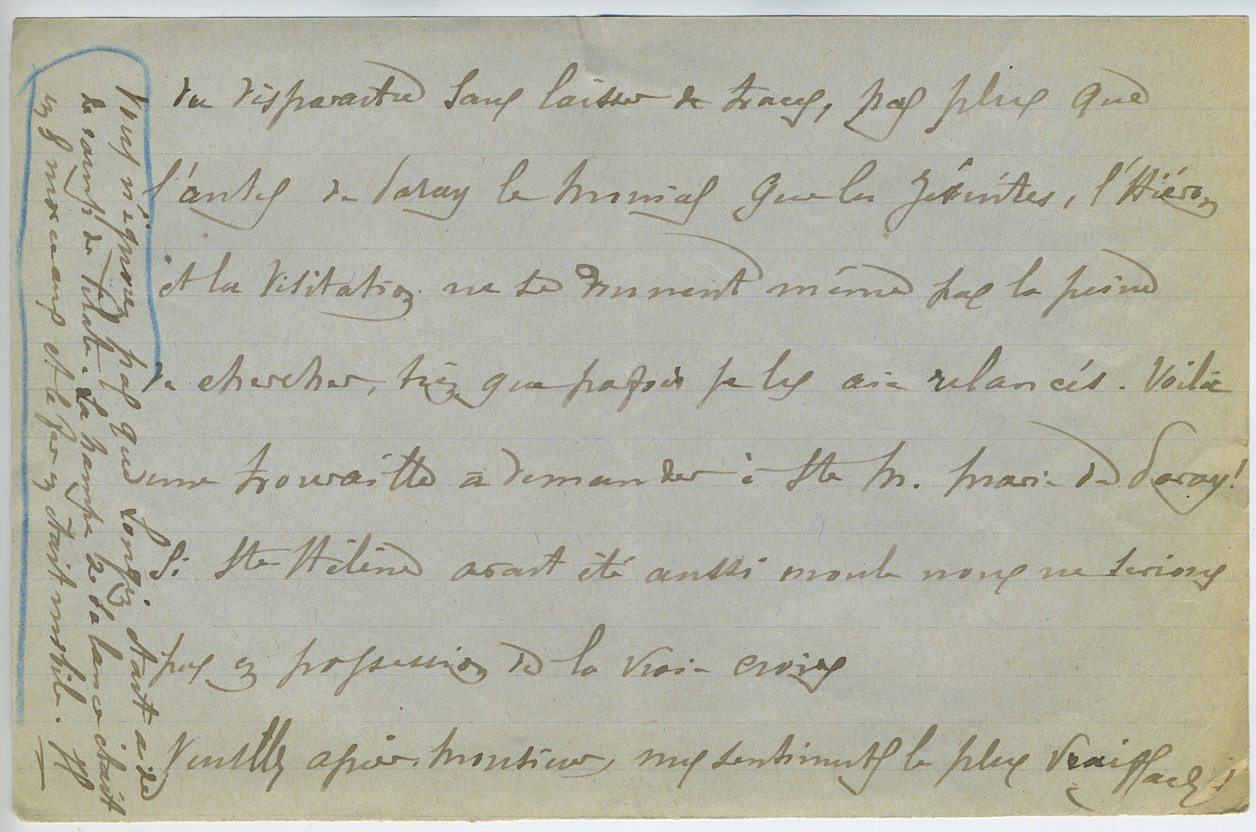 du disparaitre sans laisser de traces, pas plus que
l'autel de Paray le Monial que les Jésuites, l'Hiéron
et la Visitation ne se donnent même pas la peine
de chercher, bien que parfois je les aie relancés. Voilà
une trouvaille à demander à Ste M. Marie de Paray!
Si Ste Hélène avait été aussi molle nous ne serions
pas en possession de la vraie croix
Veuillez agréer, Monsieur, mes sentiments les plus
Vous n'ignorez pas que Longin était aide
de camp de Pilate. La hampe de sa lance était
en 8 morceaux et le fer en était mobile.